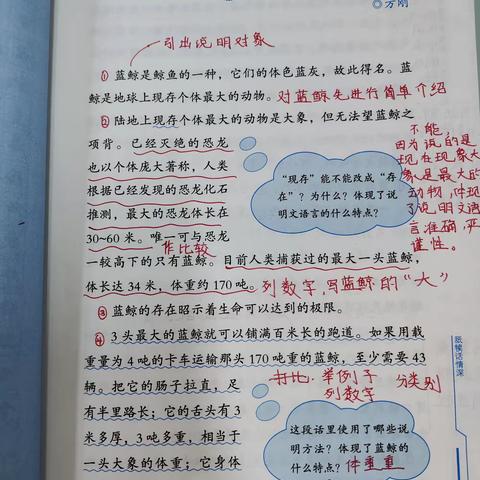 ◎方刚
引出说明对象
① 蓝鲸是鲸鱼的一种，它们的体色蓝灰，故此得名。蓝
鲸是地球上现存个体最大的动物。对蓝鲸先进行简单介绍
② 陆地上现存个体最大的动物是大象，但无法望蓝鲸之
项背。已经灭绝的恐龙
也以个体庞大著称，人类
根据已经发现的恐龙化石
推测，最大的恐龙体长在
30~60 米。唯一可与恐龙
作比较
“现存”能不能改成“存
在”？为什么？体现了说
明文语言的什么特点？
不能，
因为说的是
现在现象大
象是最大的
动物，体现
了说明文语
言准确，严
谨性。
一较高下的只有蓝鲸。目前人类捕获过的最大一头蓝鲸，
体长达 34 米，体重约 170 吨。列数字，写蓝鲸的“大”
③ 蓝鲸的存在昭示着生命可以达到的极限。
④ 3 头最大的蓝鲸就可以铺满百米长的跑道。如果用载
重量为 4 吨的卡车运输那头 170 吨重的蓝鲸，至少需要 43
辆。把它的肠子拉直，足
有半里路长；它的舌头有 3
米多厚，3 吨多重，相当于
一头大象的体重；它身体
举例子 分类别
列数字
这段话里使用了哪些说
明方法？体现了蓝鲸的
什么特点？体重重
舐犊话情深